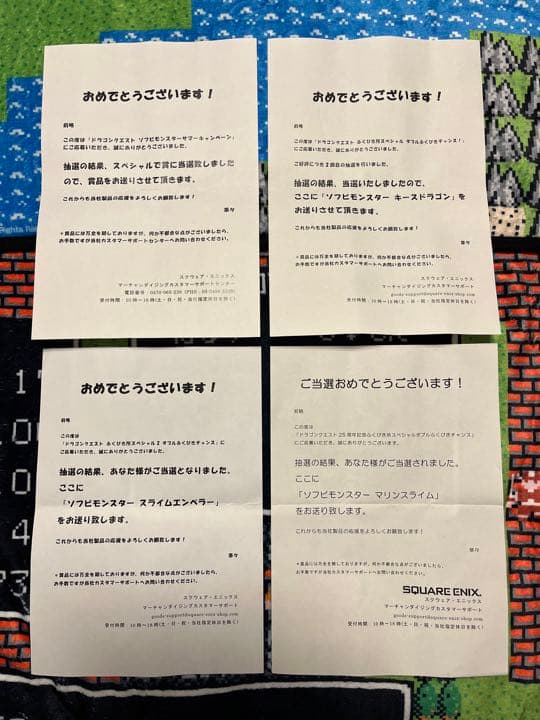 おめでとうございます！
前略
この度は「ドラゴンクエスト ソフビモンスターサマーキャンペーン」
にご応募いただき、誠にありがとうございました。
抽選の結果、スペシャルで賞に当選致しました
ので、賞品をお送りさせて頂きます。
これからも当社製品の応援をよろしくお願致します！
草々
＊賞品には万全を期しておりますが、何か不都合な点がございましたら、
お手数ですが当社カスタマーサポートセンターへお問い合わせください。
スクウェア・エニックス
マーチャンダイジングカスタマーサポートセンター
受付時間：10時～18時(土・日・祝・当社指定休日を除く)
おめでとうございます！
前略
この度は「ドラゴンクエスト ふくびき所スペシャル ダブルふくびきチャンス！」
にご応募いただき、誠にありがとうございました。
ご好評につき２回目の抽選を行いました。
抽選の結果、当選いたしましたので、
ここに「ソフビモンスター キースドラゴン」を
お送りさせて頂きます。
これからも当社製品の応援をよろしくお願致します！
草々
＊賞品には万全を期しておりますが、何か不都合な点がございましたら、
お手数ですが当社カスタマーサポートへお問い合わせください。
スクウェア・エニックス
マーチャンダイジングカスタマーサポート
goods-support@square-enix-shop.com
受付時間：10時～18時(土・日・祝・当社指定休日を除く)
おめでとうございます！
前略
この度は
「ドラゴンクエスト ふくびき所スペシャル２ ダブルふくびきチャンス」に
ご応募いただき、誠にありがとうございました。
抽選の結果、あなた様がご当選となりました。
ここに
「ソフビモンスター スライムエンペラー」
をお送り致します。
これからも当社製品の応援をよろしくお願致します！
草々
＊賞品には万全を期しておりますが、何か不都合な点がございましたら、
お手数ですが当社カスタマーサポートへお問い合わせください。
スクウェア・エニックス
マーチャンダイジングカスタマーサポート
goods-support@square-enix-shop.com
受付時間：10時～18時(土・日・祝・当社指定休日を除く)
ご当選おめでとうございます！
前略
この度は
「ドラゴンクエスト 25周年記念ふくびき所スペシャルダブルふくびきチャンス」に
ご応募いただき、誠にありがとうございます。
抽選の結果、あなた様がご当選されました。
ここに
「ソフビモンスター マリンスライム」
をお送り致します。
これからも当社製品の応援をよろしくお願致します！
草々
＊賞品には万全を期しておりますが、何か不都合な点がございましたら、
お手数ですが当社カスタマーサポートへお問い合わせください。
SQUARE ENIX.
スクウェア・エニックス
マーチャンダイジングカスタマーサポート
goods-support@square-enix-shop.com
受付時間：10時～18時(土・日・祝・当社指定休日を除く)